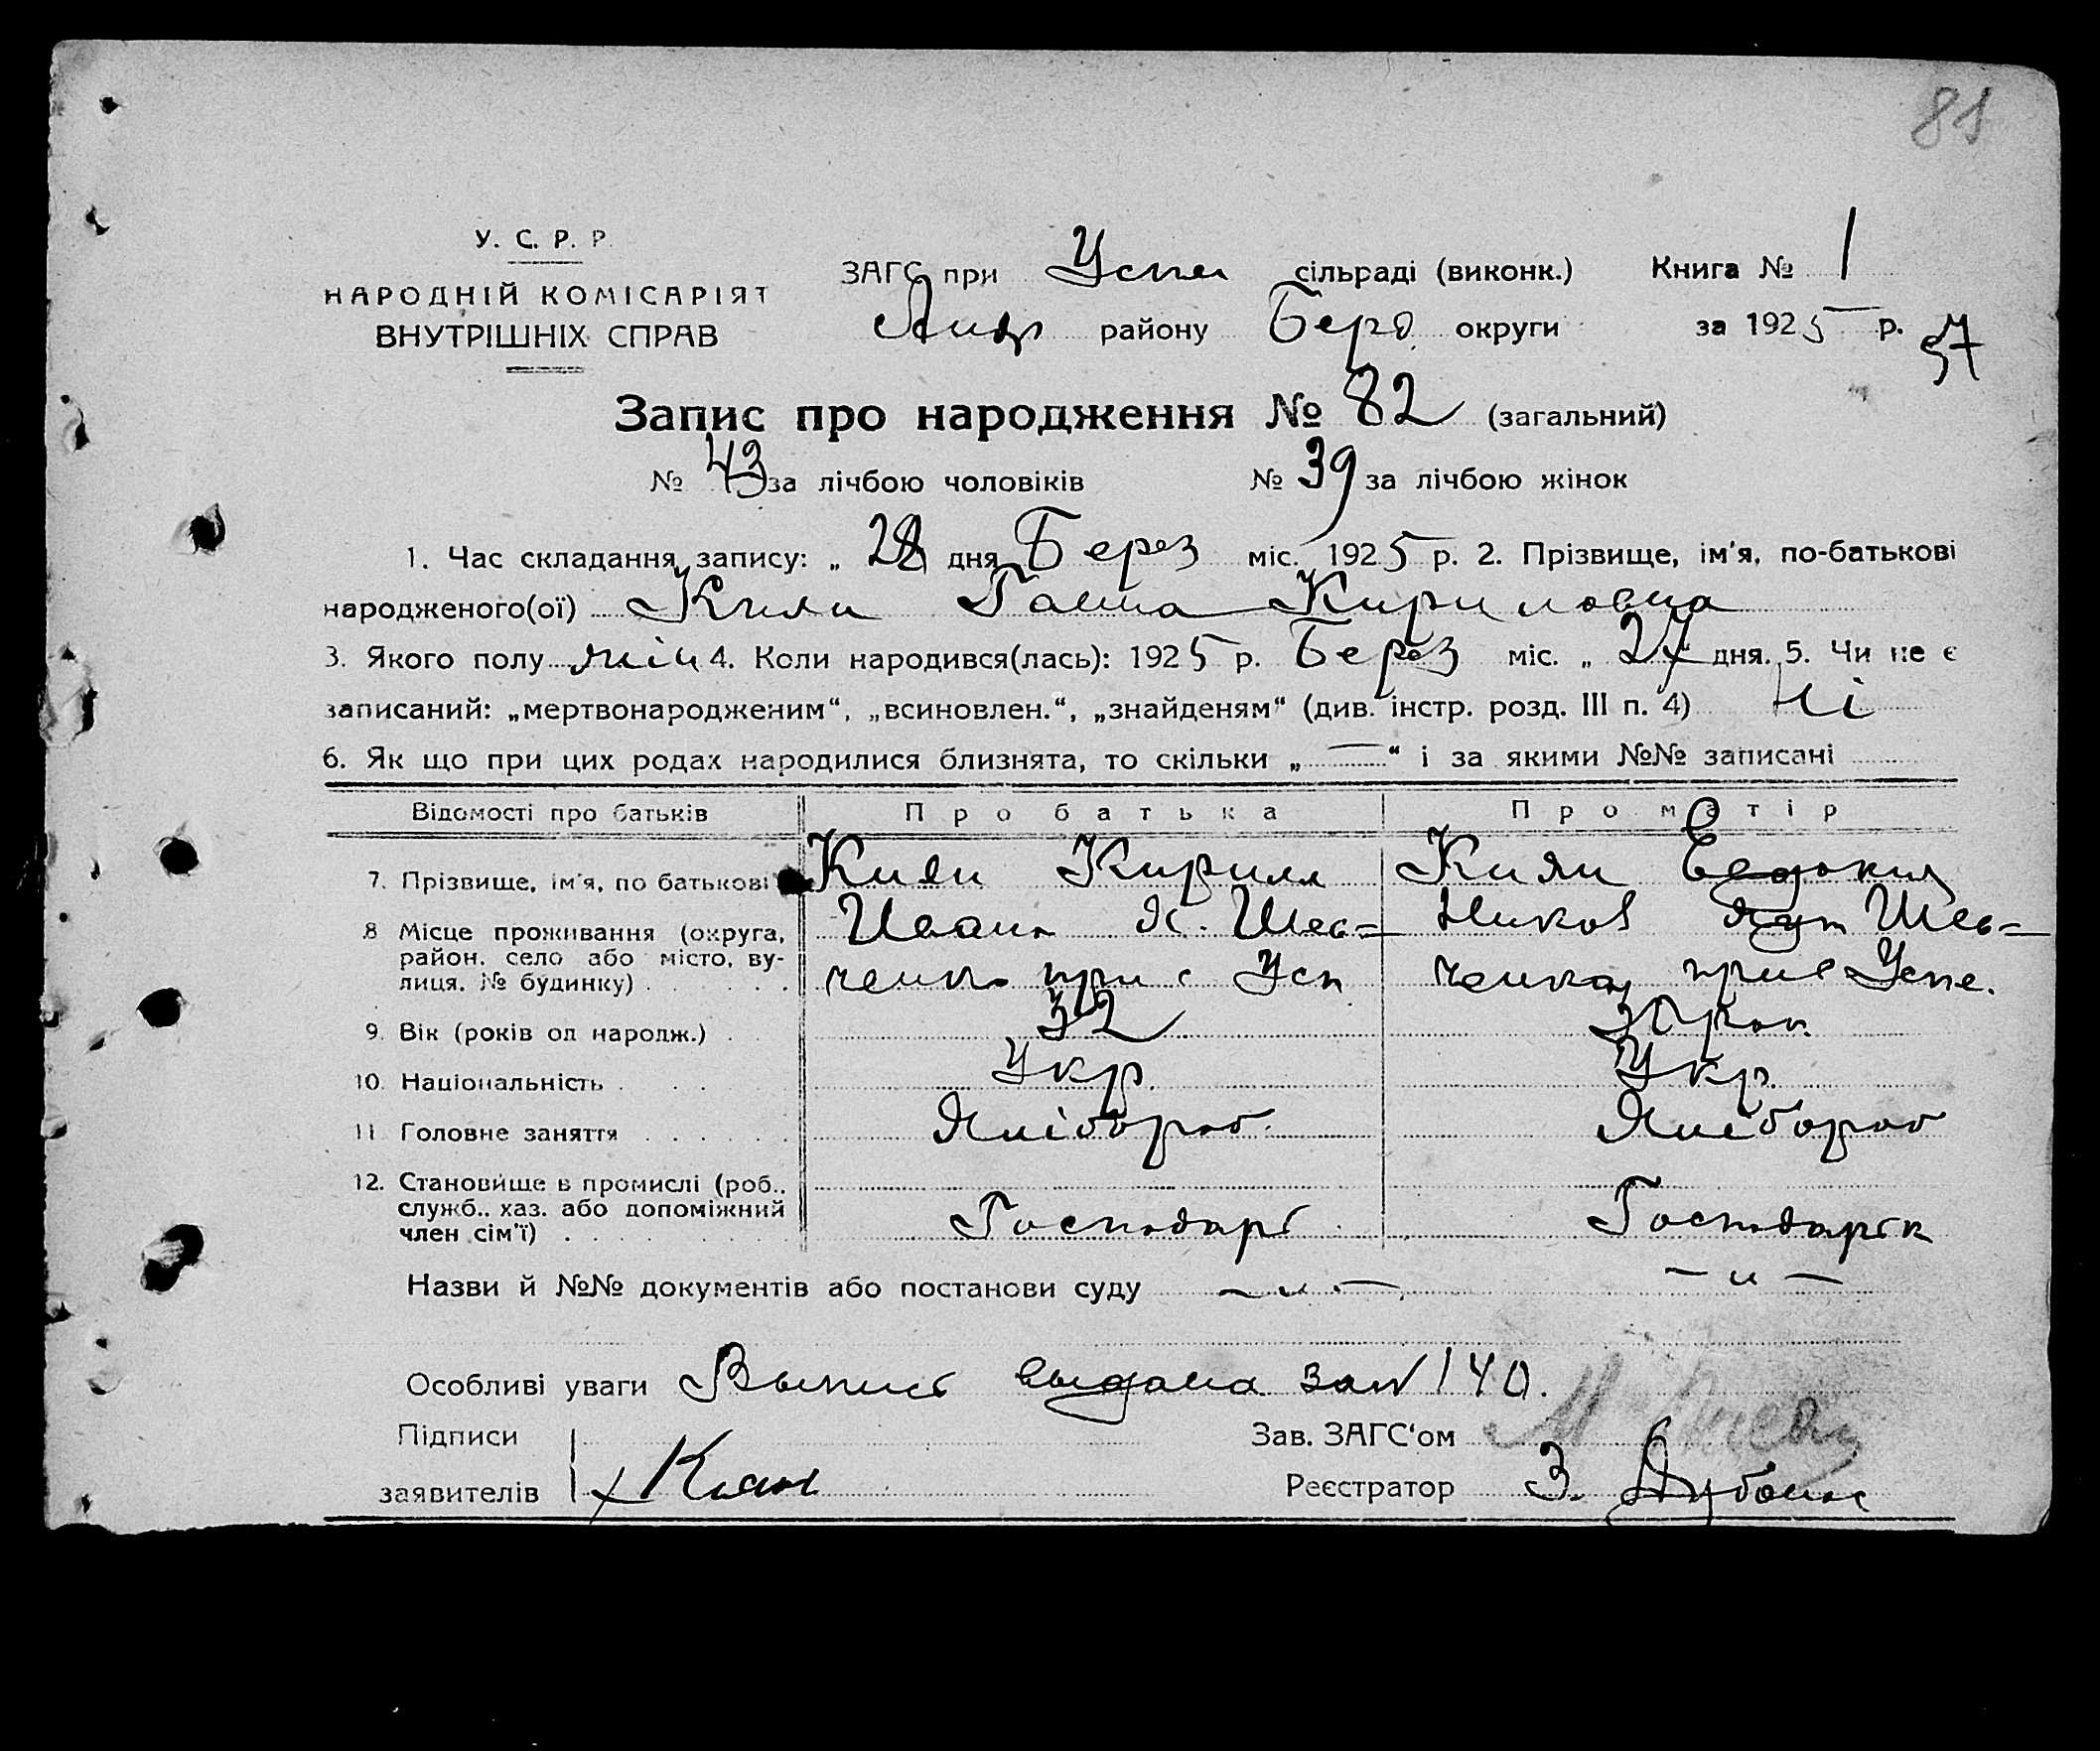 81
У. С. Р. Р.
НАРОДНІЙ КОМІСАРІЯТ
ВНУТРІШНІХ СПРАВ
ЗАГС при Успен сільраді (виконк.) Книга № 1
району Берд. округи за 1925 р. 57
Запис про народження № 82 (загальний)
№ 43 за лічбою чоловіків № 39 за лічбою жінок
1. Час складання запису: „ 28 дня Берез міс. 1925 р. 2. Прізвище, ім'я, по-батькові
народженого(ої) Киян Ганна Кириловна
3. Якого полу жін 4. Коли народився(лась): 1925 р. Берез міс. „ 27 дня. 5. Чи не є
записаний: „мертвонародженим“, „всиновлен.“, „знайденям“ (див. інстр. розд. III п. 4) Ні
6. Як що при цих родах народилися близнята, то скільки „ — “ і за якими №№ записані
Відомості про батьків Про батька Про матір
7. Прізвище, ім'я, по батькові Киян Кирилл Киян Евдокия
8 Місце проживання (округа, Иван Х. Шев= Ников Шев=
район, село або місто, ву-
лиця, № будинку) ченко при с Усп ченко при с Успе.
9. Вік (років од народж.) 32 30 рок
10. Національність Укр. Укр.
11 Головне заняття Хлібороб. Хлібороб
12. Становище в промислі (роб.,
служб., хаз. або допоміжний Господарь Господарк
член сім'ї)
Назви й №№ документів або постанови суду — „ — — „ —
Особливі уваги Выпись выдана за № 140.
Підписи Зав. ЗАГС'ом
заявителів Киян Реєстратор З.